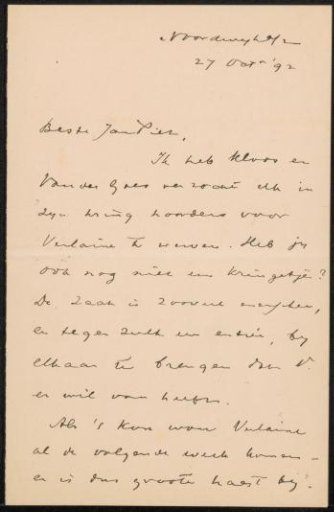 Noordwijk a/z
27 Oct. '92
Beste Jan Piet,
Ik heb Kloos en
Van der Goes verzocht elk in
zijn kring hoorders voor
Verlaine te werven. Heb jij
ook nog niet een kringetje?
De zaak is zooveel menschen,
en tegen zulk een entrée, bij
elkaar te brengen dan V.
er wil van
Als 't kon wou Verlaine
al de volgende week komen -
er is dus groote haast bij.